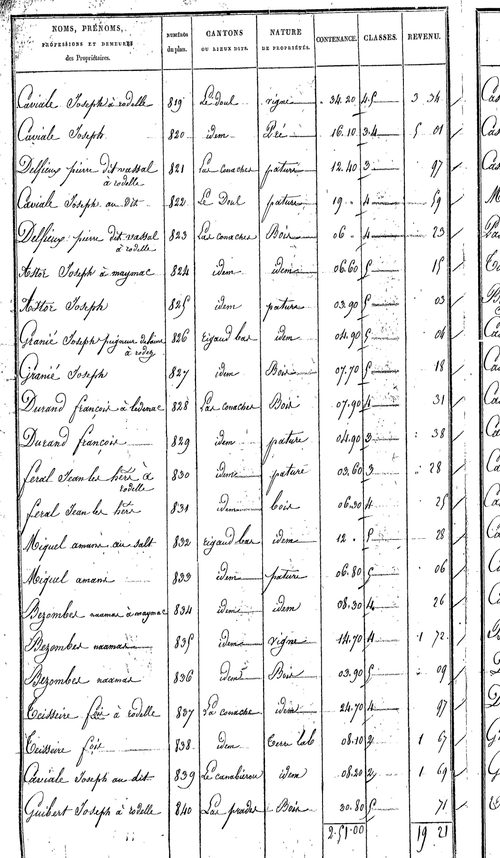 NOMS, PRÉNOMS, PROFESSIONS ET DEMEURES des Propriétaires. NUMÉROS du plan. CANTONS OU LIEUX DITS. NATURE DE PROPRIÉTÉS. CONTENANCE. CLASSES. REVENU.
Caviale Joseph à rodelle 819 Le doul vigne . 34.20 4.5 3 34
Caviale Joseph 820 idem Pré . 16.10 3.4 5 01
Delfieux pierre dit vassal à rodelle 821 Las conaches pature 12.40 3 97
Caviale Joseph au dit 822 Le Doul pature 19 . 4 59
Delfieux pierre dit vassal à rodelle 823 Las conaches Bois 06 . 4 23
Astor Joseph à maymac 824 idem idem 06.60 5 15
Astor Joseph 825 idem pature 03.90 5 03
Granié Joseph peigneur de laine à rodez 826 rigaud bas idem 04.90 5 04
Granié Joseph 827 idem Bois 07.70 5 18
Durand françois à 828 Las conaches Bois 07.90 4 31
Durand françois 829 idem pature 04.90 3 38
feral Jean les hérs à rodelle 830 idem pature 03.60 3 28
feral Jean les hérs 831 idem bois 06.30 4 25
Miquel amans au salt 832 rigaud bas idem 12 . 5 28
Miquel amans 833 idem pature 06.80 5 06
Bezombes naamas à maymac 834 idem idem 08.30 4 26
Bezombes naamas 835 idem vigne 14.70 4 1 72
Bezombes naamas 836 idem Bois 03.90 5 09
Teisseire foi à rodelle 837 La conache idem 24.70 4 97
Teisseire foi 838 idem Terre lab 08.10 2 1 67
Caviale Joseph au dit 839 Le canabierou idem 08.20 2 1 69
Guibert Joseph à rodelle 840 Las prades Bois 30.80 5 71
2.51.00 19 21